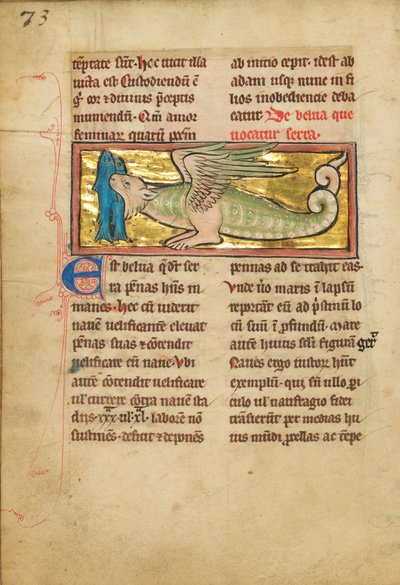 73
tēptate sūt. Hec dicit illa
iuxta est Custodiendū ē
g̊ cor ⁊ diuinis p̄ceptis
muniendū. Qm̄ amor
feminar̄
ab initio cepit. idest ab
adam usq̨ nunc in fi
lios inobediencie deba
catur. De belua que
uocatur serra.
Est belua q̄ dr̄ ser
ra pēnas hn̄s in
manes. Hec cū uiderit
nauē uelificantē eleuat
pēnas suas ⁊ cōtendit
uelificare cū naue. Vbi
autē cōtendit uelificare
ul̄ currere cōtra nauē sta
diis .xxx. ul̄ .xl. laborē nō
sustinēs. deficit ⁊ deponēs
pennas ad se trahit eas.
Vnde uō maris iā lapsū
reportant eū ad p̄stinū lo
cū suū ī p̄fundū. Mare
autē huius sc̄li figurā ger̄
Naues ergo iustor̄ hn̄t
exemplū. qui sn̄ ullo p̄i
culo ul̄ naufragio fidei
transierūt per medias hu
ius mūdi p̄cellas ac tēpe